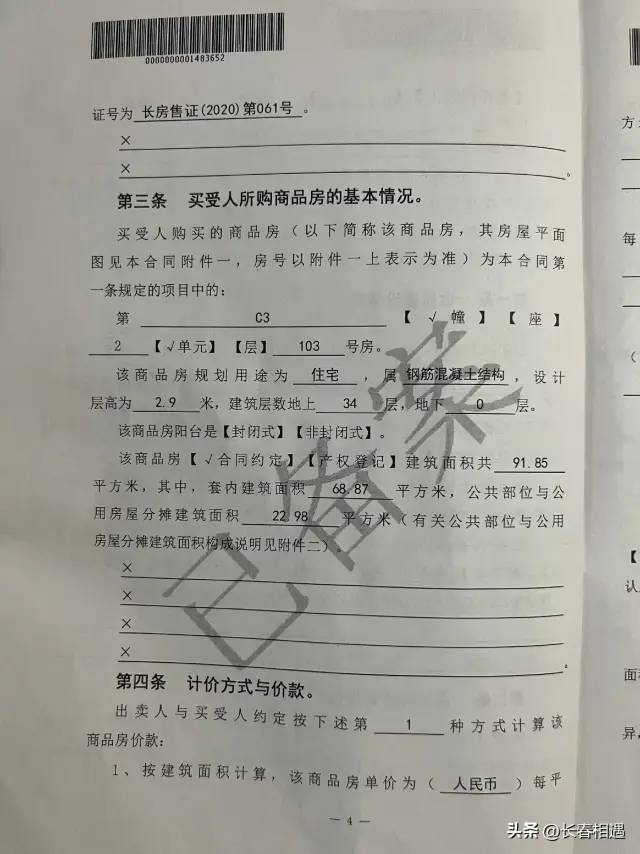 0000000001483652
证号为 长房售证(2020)第061号 。
×
× 。
第三条 买受人所购商品房的基本情况。
买受人购买的商品房（以下简称该商品房，其房屋平面
图见本合同附件一，房号以附件一上表示为准）为本合同第
一条规定的项目中的：
第 C3 【√幢】【座】
2 【√单元】【层】 103 号房。
该商品房规划用途为 住宅 ，属 钢筋混凝土结构 ，设计
层高为 2.9 米，建筑层数地上 34 层，地下 0 层。
该商品房阳台是【封闭式】【非封闭式】。
该商品房【√合同约定】【产权登记】建筑面积共 91.85
平方米，其中，套内建筑面积 68.87 平方米，公共部位与公
用房屋分摊建筑面积 22.98 平方米（有关公共部位与公用
房屋分摊建筑面积构成说明见附件二）。
×
×
×
× 。
已备案
第四条 计价方式与价款。
出卖人与买受人约定按下述第 1 种方式计算该
商品房价款：
1、按建筑面积计算，该商品房单价为（ 人民币 ）每平
— 4 —
方
每
（
【
认
面
异，
头条 @长春相遇